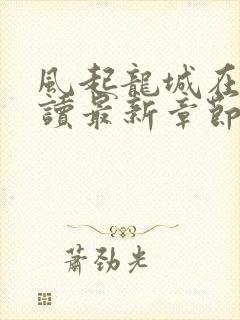 風起龍城在
讀最新章節
蕭勁光